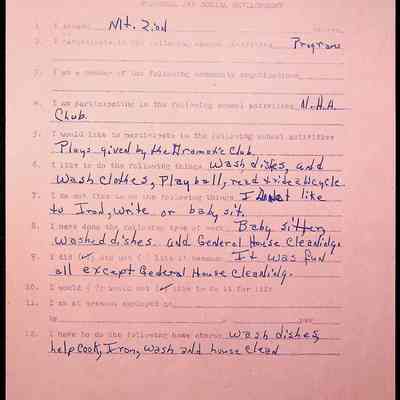 PERSONAL AND SOCIAL DEVELOPMENT
1. I attend Mt. Zion church.
2. I participate in the following church activities Programs
3. I am a member of the following community organizations
4. I am participating in the following school activities N.H.A.
Club.
5. I would like to participate in the following school activities
Plays given by the Dramatic Club.
6. I like to do the following things Wash dishes, and
Wash clothes, Play ball, read & ride a bicycle
7. I do not like to do the following things I do not like
to Iron, write or baby sit.
8. I have done the following type of work Baby sitter,
washed dishes and General House Cleaning.
9. I did (✓) did not ( ) like it because It was fun
all except General House Cleaning.
10. I would ( ) would not (✓) like to do it for life
11. I am at present employed as
by
12. I have to do the following home chores wash dishes,
help cook, Iron, wash and house clean